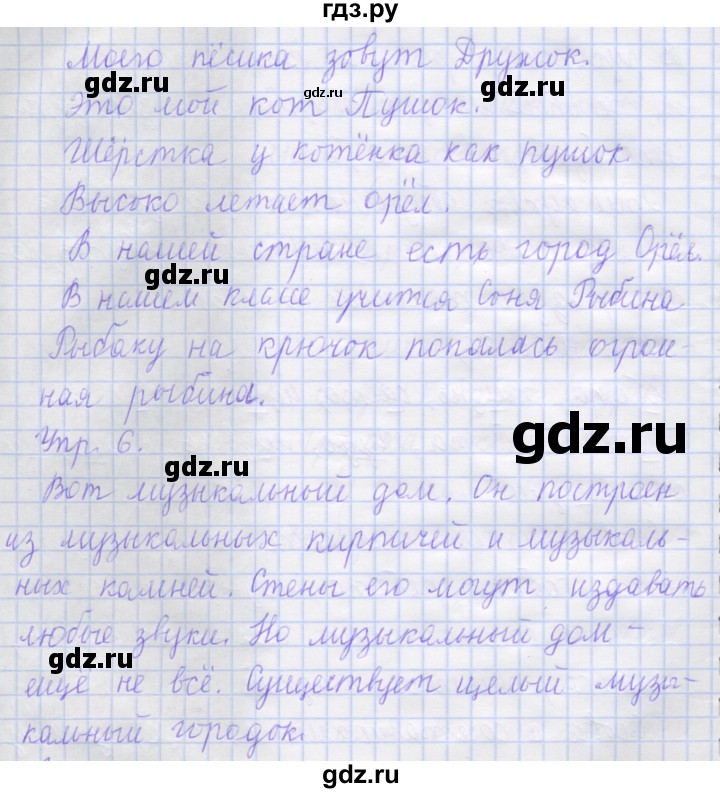 гдз.ру
Моего пёсика зовут Дружок.
gdz.ru
gdz.ru
gdz.ru
Это мой кот Пушок.
Шёрстка у котёнка как пушок.
Высоко летает орёл.
В нашей стране есть город Орёл.
gdz.ru
В нашем классе учится Соня Рыбина
Рыбаку на крючок попалась огром-
ная рыбина.
gdz.ru
Упр. 6.
gdz.ru
Вот музыкальный дом. Он построен
из музыкальных кирпичей и музыкаль-
ных камней. Стены его могут издавать
gdz.ru
любые звуки. Но музыкальный дом -
gdz.ru
еще не всё. Существует целый музы-
кальный городок.
gdz.ru